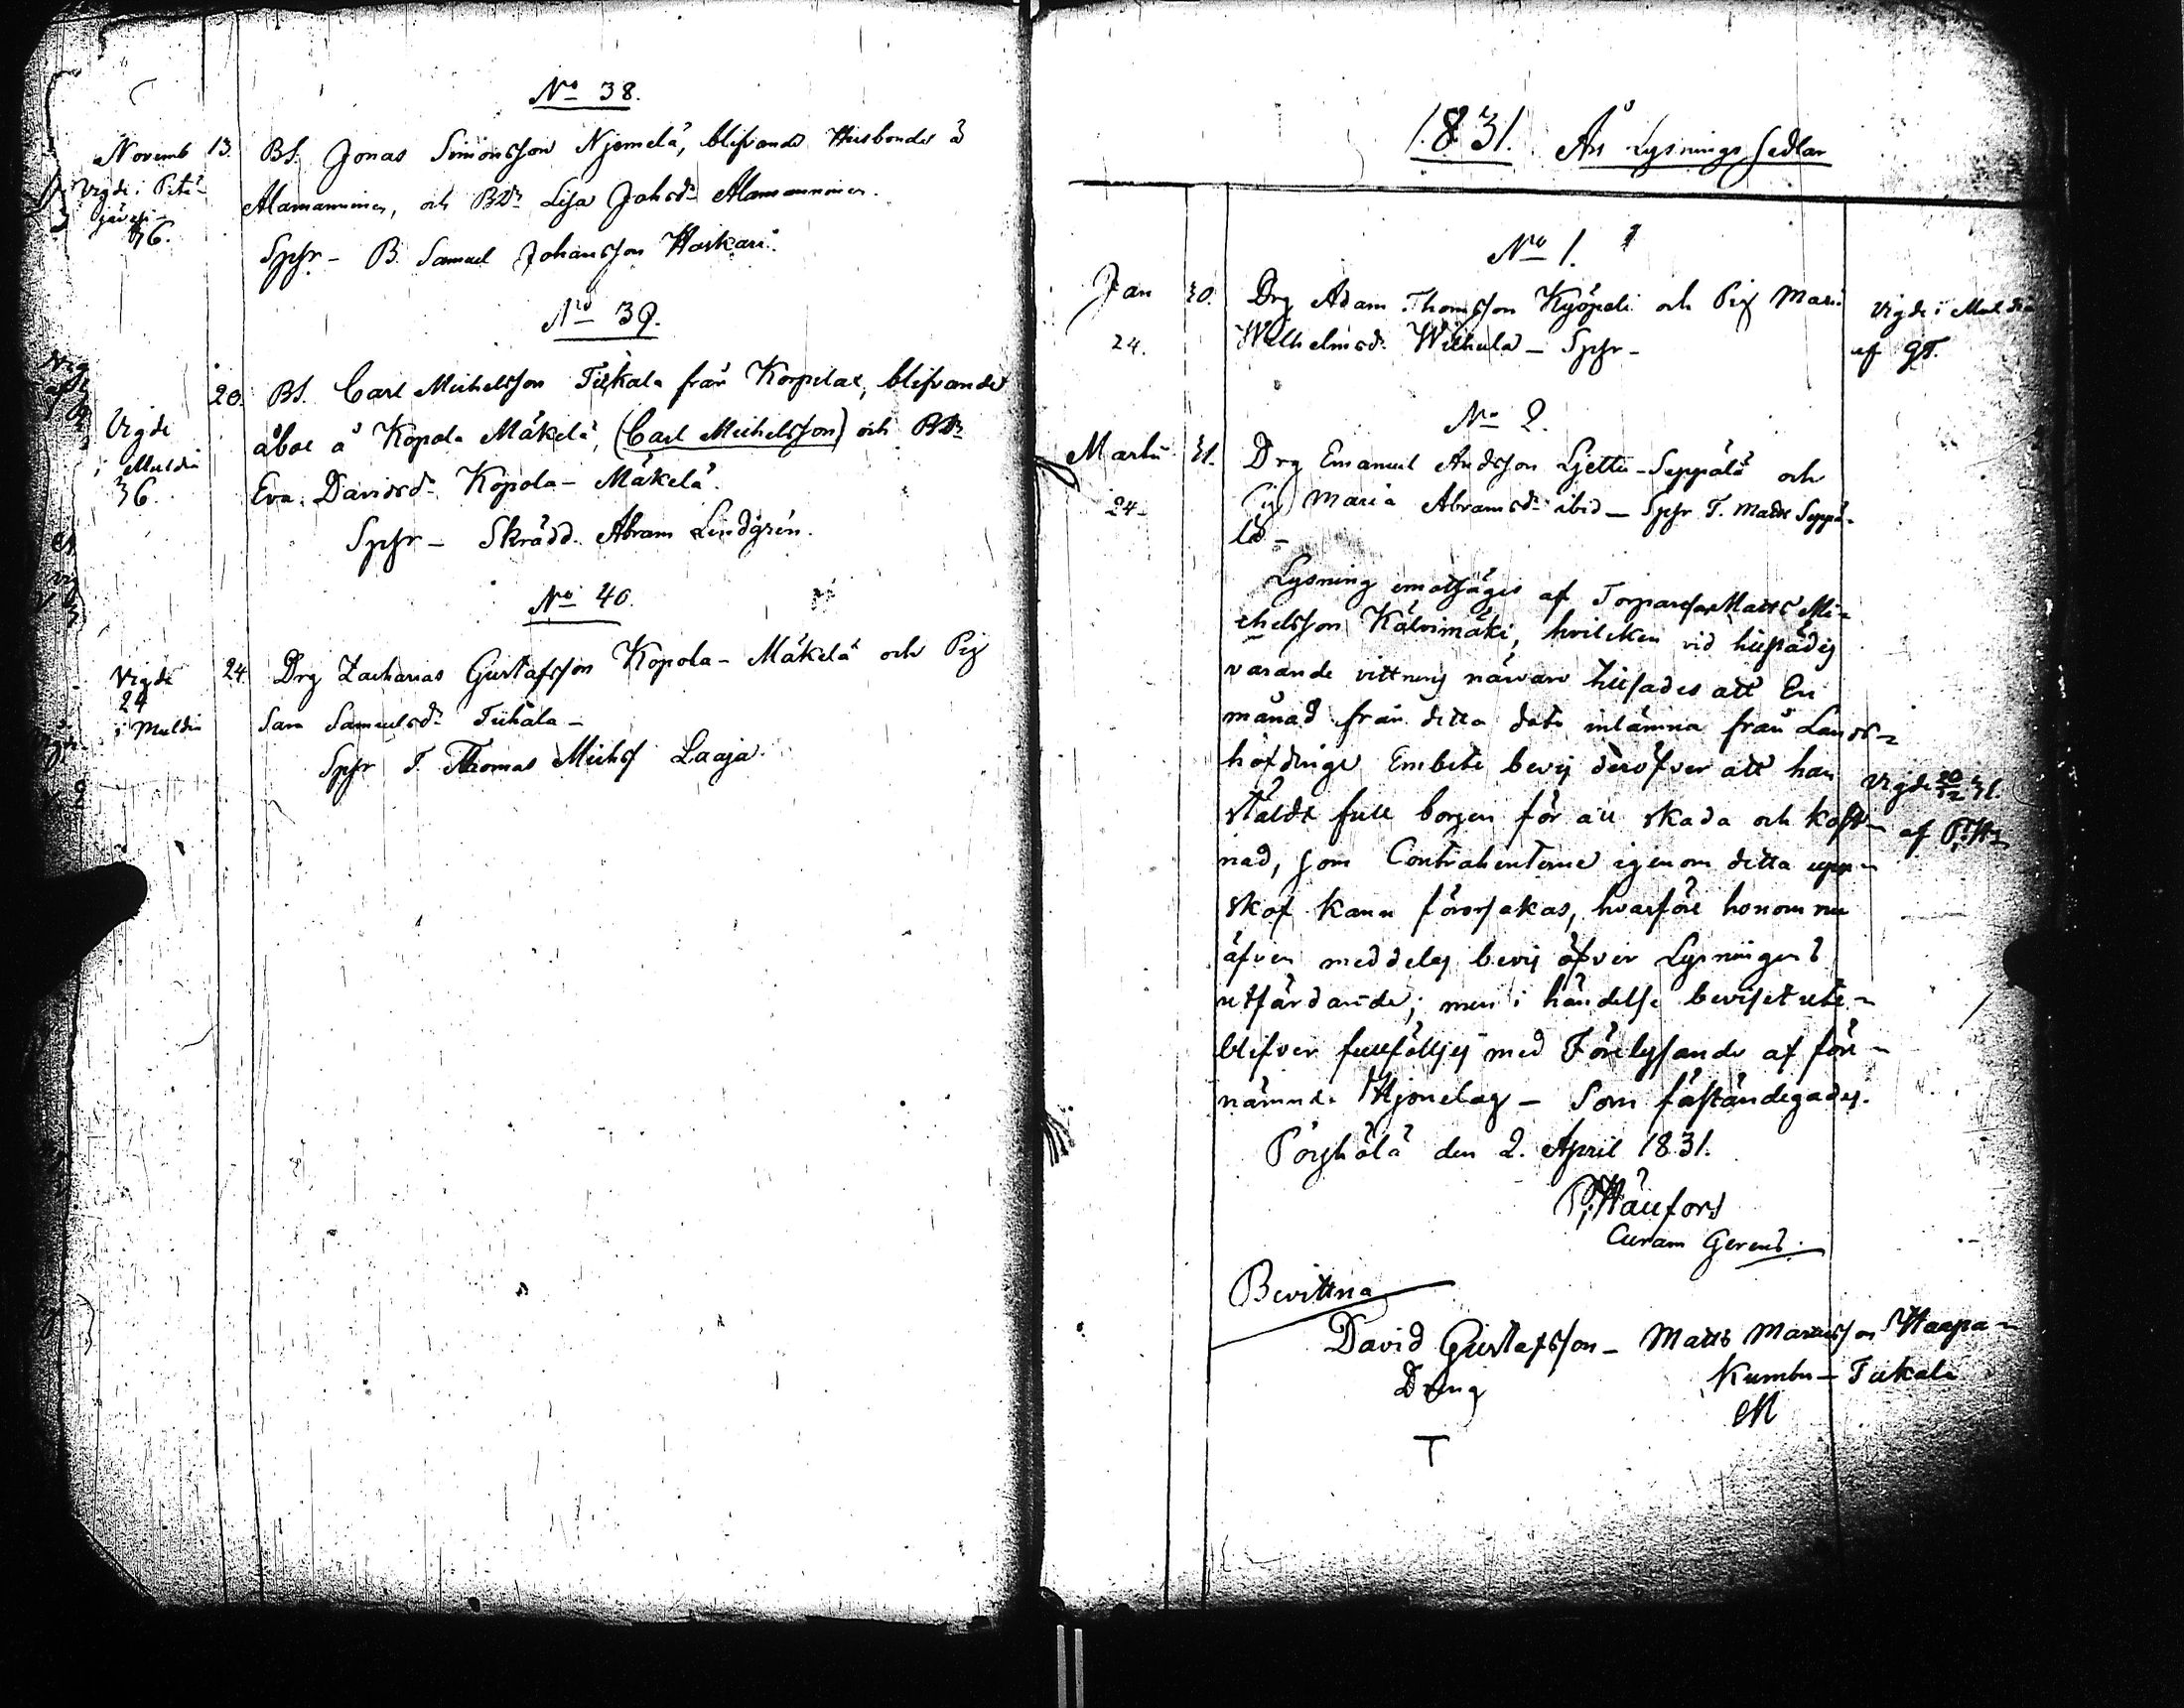 No 38.
Novemb 13. BS. Jonas Simonsson Njemelä, blifvande Husbonde å
Vigde i Pitä-
javesi
36.
Alamanninen, och BDr Lisa Johsdr Alamanninen.
Spsr - B. Samuel Johansson Haskari.
No 39.
20. BS. Carl Michelsson Tiikala från Korpilax, blifvande
Vigde
i Muldia
36.
åboe å Kopola Mäkelä, (Carl Michelsson) och BDr
Eva Davidsdr Kopola-Mäkelä.
Spsr - Skrädd. Abram Lindgrén.
No 40.
Vigde
24
i Muldia
24. Drg Zacharias Gustafsson Kopola-Mäkelä och Pig
Sara Samuelsdr Tiihala -
Spsr T. Thomas Michss Laaja.
1831. Års Lysnings Sedlar
No 1.
Jan 30. Drg Adam Thomsson Kyöpeli och Pig Maria
24. Wilhelmsdr Wilhula - Spsr -
Vigde i Muldia
af GT.
No 2.
Martii 31. Drg Emanuel Andsson Ljettu-Seppälä och
24- Pig Maria Abramsdr ibid - Spsr T. Matts Seppä-
lä -
Lysning emotsäges af Torparesonen Matts Mi-
chelsson Kälvimäki, hvilcken vid
varande vittnens närvaro att En
månad från detta dato inlämna från Lands-
höfdinge Embete bevis deröfver att han
stäldt full borgen för all skada och kost-
nad, som Contrahenterne igenom detta upp-
skof kann förorsakas, hvarföre honom nu
äfven meddelas bevis öfver Lysningens
utfärdande; men i händelse beviset ute-
blifver fullföljes med Förelysande af före-
nämnde Hjonelag - Som
Vigde 20/12 31.
af P.H-
Pörhölä den 2. April 1831.
P. Hällfors
Curam Gerens.
Bevittna
David Gustafsson - Matts Mattsson Haapa-
Dräng Kumbu - Tiikala
T M